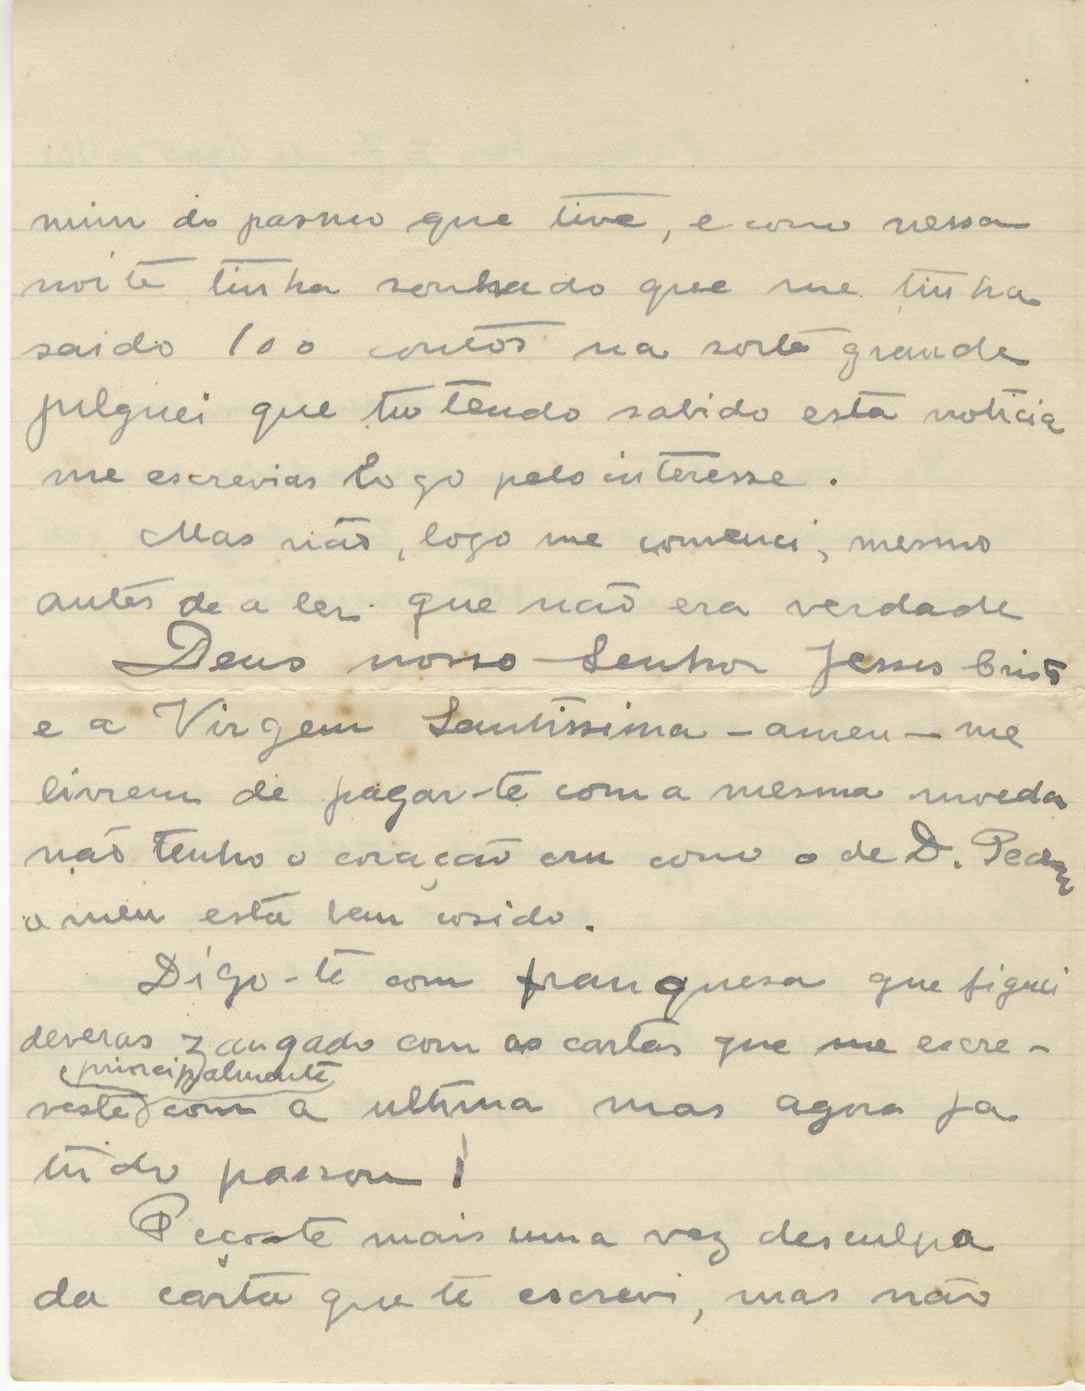 mim do pasmo que tive, e como nessa
noite tinha sonhado que me tinha
saido 100 contos na sorte grande
julguei que tu tendo sabido esta noticia
me escrevias logo pelo interesse.
Mas não, logo me convenci, mesmo
antes de a ler que não era verdade
Deus nosso Senhor Jesus Cristo
e a Virgem Santissima - amen - me
livrem de pagar-te com a mesma moeda
não tenho o coração cru como o de D. Pedro
o meu está bem cosido.
Digo-te com franquesa que fiquei
deveras zangado com as cartas que me escre-
principalmente
veste com a ultima mas agora ja
tudo passou!
Peço-te mais uma vez desculpa
da carta que te escrevi, mas não